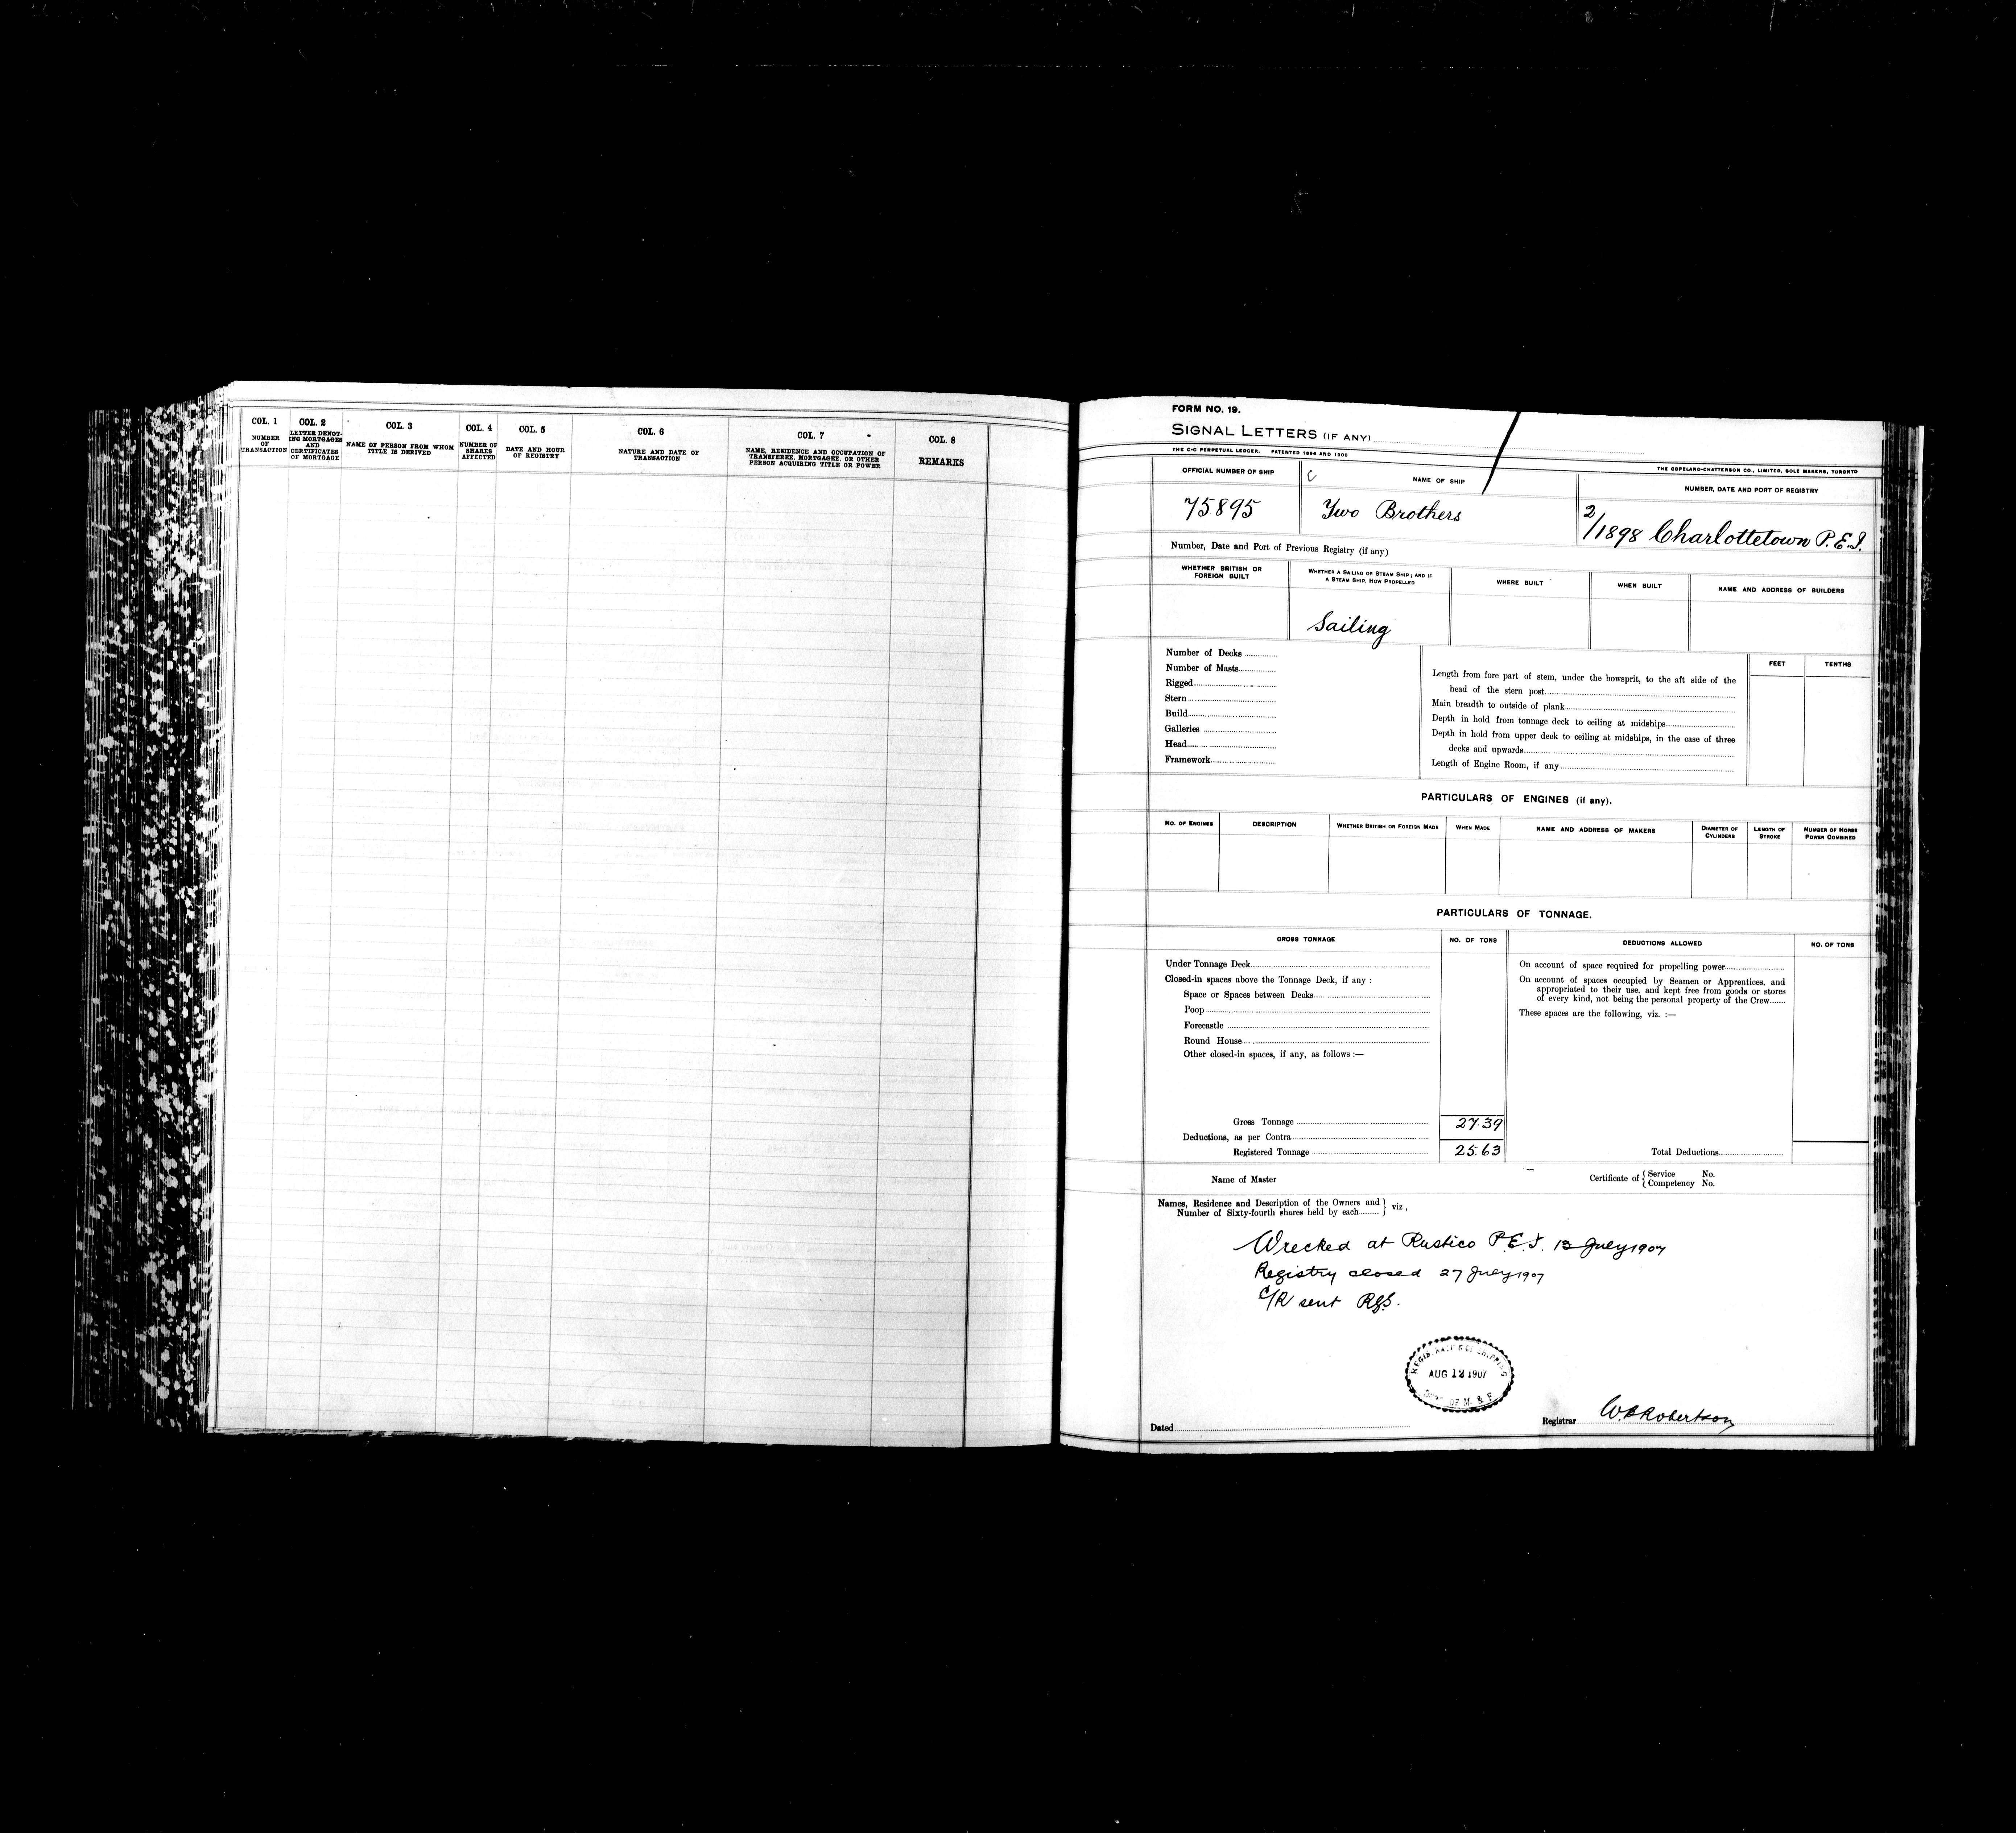 COL. 1
NUMBER
OF
TRANSACTION
COL. 2
LETTER DENOT-
ING MORTGAGES
AND
CERTIFICATES
OF MORTGAGE
COL. 3
NAME OF PERSON FROM WHOM
TITLE IS DERIVED
COL. 4
NUMBER OF
SHARES
AFFECTED
COL. 5
DATE AND HOUR
OF REGISTRY
COL. 6
NATURE AND DATE OF
TRANSACTION
COL. 7
NAME, RESIDENCE AND OCCUPATION OF
TRANSFEREE, MORTGAGEE, OR OTHER
PERSON ACQUIRING TITLE OR POWER
COL. 8
REMARKS
FORM NO. 19.
SIGNAL LETTERS (IF ANY)
THE C-C PERPETUAL LEDGER. PATENTED 1896 AND 1900
THE COPELAND-CHATTERSON CO., LIMITED, SOLE MAKERS, TORONTO
OFFICIAL NUMBER OF SHIP
75895
NAME OF SHIP
Two Brothers
NUMBER, DATE AND PORT OF REGISTRY
2/1898 Charlottetown P.E.I.
Number, Date and Port of Previous Registry (if any)
WHETHER BRITISH OR
FOREIGN BUILT
WHETHER A SAILING OR STEAM SHIP; AND IF
A STEAM SHIP, HOW PROPELLED
Sailing
WHERE BUILT
WHEN BUILT
NAME AND ADDRESS OF BUILDERS
Number of Decks
Number of Masts
Rigged
Stern
Build
Galleries
Head
Framework
FEET
TENTHS
Length from fore part of stem, under the bowsprit, to the aft side of the
head of the stern post
Main breadth to outside of plank
Depth in hold from tonnage deck to ceiling at midships
Depth in hold from upper deck to ceiling at midships, in the case of three
decks and upwards
Length of Engine Room, if any
PARTICULARS OF ENGINES (if any).
NO. OF ENGINES
DESCRIPTION
WHETHER BRITISH OR FOREIGN MADE
WHEN MADE
NAME AND ADDRESS OF MAKERS
DIAMETER OF
CYLINDERS
LENGTH OF
STROKE
NUMBER OF HORSE
POWER COMBINED
PARTICULARS OF TONNAGE.
GROSS TONNAGE
NO. OF TONS
DEDUCTIONS ALLOWED
NO. OF TONS
Under Tonnage Deck
Closed-in spaces above the Tonnage Deck, if any :
Space or Spaces between Decks
Poop
Forecastle
Round House
Other closed-in spaces, if any, as follows :—
Gross Tonnage 27.39
Deductions, as per Contra
Registered Tonnage 25.63
On account of space required for propelling power
On account of spaces occupied by Seamen or Apprentices, and
appropriated to their use, and kept free from goods or stores
of every kind, not being the personal property of the Crew
These spaces are the following, viz. :—
Total Deductions
Name of Master
Certificate of { Service No.
{ Competency No.
Names, Residence and Description of the Owners and
Number of Sixty-fourth shares held by each } viz,
Wrecked at Rustico P.E.I. 13 July 1907
Registry closed 27 July 1907
C/R sent RGS.
AUG 12 1907
OF M. & F.
Dated
Registrar